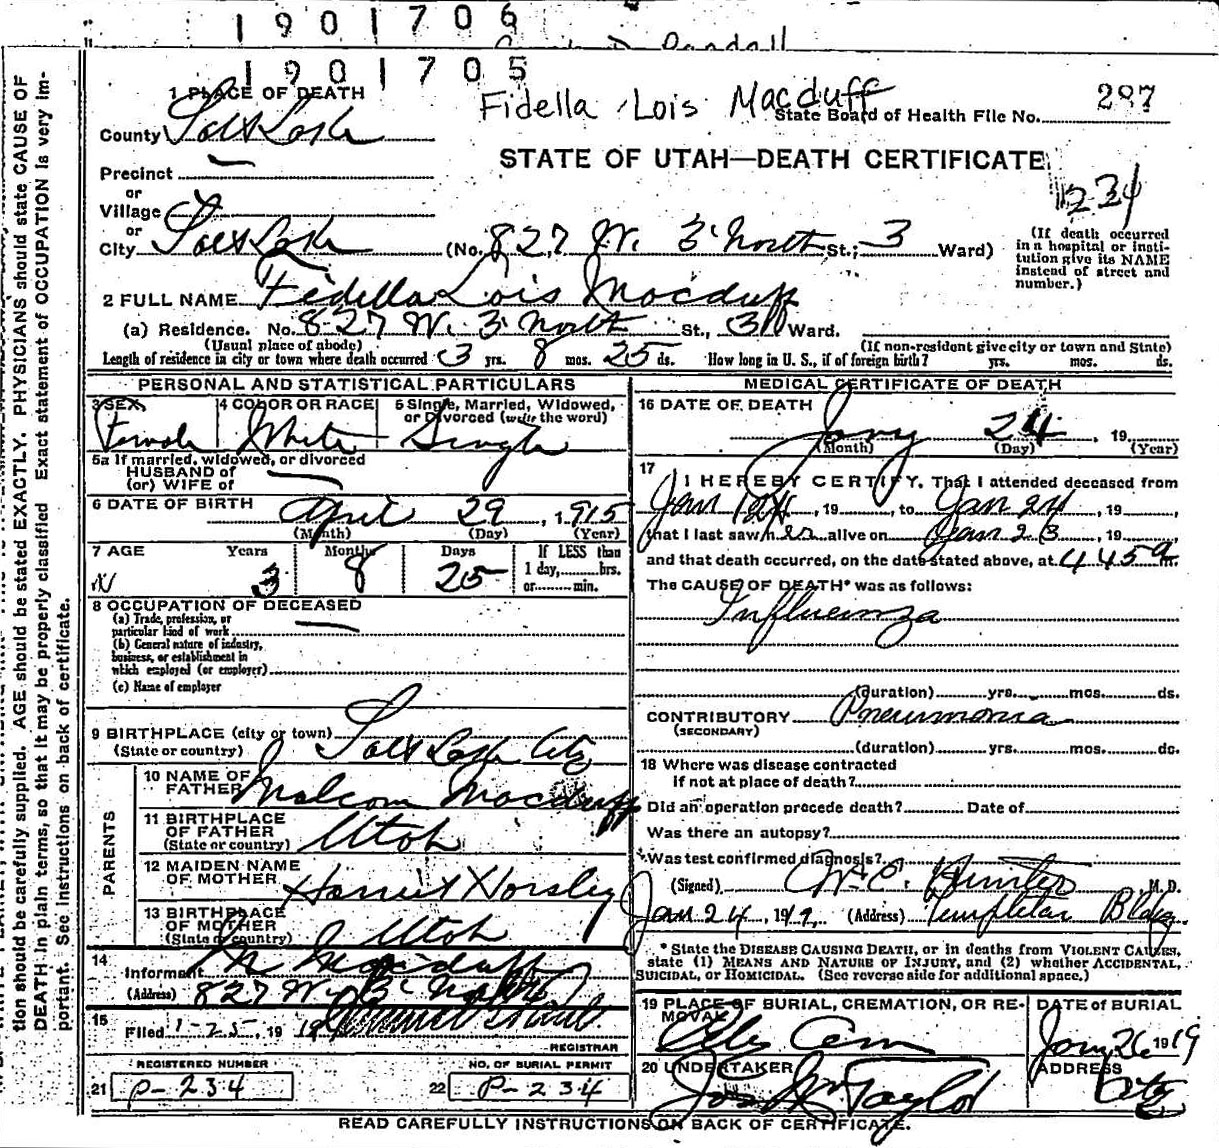 1901706
1901705
Fidella Lois Macduff
State Board of Health File No. 287
1 PLACE OF DEATH
County Salt Lake
STATE OF UTAH—DEATH CERTIFICATE
Precinct
or
Village
234
or
City Salt Lake (No. 827 W. 3 North St.; 3 Ward)
(If death occurred in a hospital or insti-
tution give its NAME
instead of street and
number.)
2 FULL NAME Fidella Lois Macduff
(a) Residence. No. 827 W. 3 North St., 3 Ward.
(Usual place of abode) (If non-resident give city or town and State)
Length of residence in city or town where death occurred 3 yrs. 8 mos. 25 ds. How long in U. S., if of foreign birth? yrs. mos. ds.
PERSONAL AND STATISTICAL PARTICULARS
3 SEX Female
4 COLOR OR RACE White
5 Single, Married, Widowed,
or Divorced (write the word) Single
5a If married, widowed, or divorced
HUSBAND of
(or) WIFE of
6 DATE OF BIRTH April 29, 1915
(Month) (Day) (Year)
7 AGE Years Months Days If LESS than
1 day, hrs.
or min.
3 8 25
8 OCCUPATION OF DECEASED
(a) Trade, profession, or
particular kind of work
(b) General nature of industry,
business, or establishment in
which employed (or employer)
(c) Name of employer
9 BIRTHPLACE (city or town) Salt Lake City
(State or country)
PARENTS
10 NAME OF
FATHER Malcom Macduff
11 BIRTHPLACE
OF FATHER
(State or country) Utah
12 MAIDEN NAME
OF MOTHER Harriet Horsley
13 BIRTHPLACE
OF MOTHER
(State or country) Utah
14
Informant M Macduff
(Address) 827 W. 3 North
15
Filed 1-25, 1919
REGISTRAR
REGISTERED NUMBER
21 P-234
NO. OF BURIAL PERMIT
22 P-234
MEDICAL CERTIFICATE OF DEATH
16 DATE OF DEATH
Jany 24, 19
(Month) (Day) (Year)
17
I HEREBY CERTIFY, That I attended deceased from
Jan, 19, to Jan 24, 19,
that I last saw her alive on Jan 23, 19,
and that death occurred, on the date stated above, at 4 45 a m.
The CAUSE OF DEATH* was as follows:
Influenza
(duration) yrs. mos. ds.
CONTRIBUTORY Pneumonia
(SECONDARY)
(duration) yrs. mos. ds.
18 Where was disease contracted
if not at place of death?
Did an operation precede death? Date of
Was there an autopsy?
Was test confirmed diagnosis?
(Signed) Hunter M. D.
Jan 24, 1919. (Address) Templeton Bldg
* State the DISEASE CAUSING DEATH, or in deaths from VIOLENT CAUSES,
state (1) MEANS AND NATURE OF INJURY, and (2) whether ACCIDENTAL,
SUICIDAL, or HOMICIDAL. (See reverse side for additional space.)
19 PLACE OF BURIAL, CREMATION, OR RE-
MOVAL Cem
DATE of BURIAL
Jany 26 1919
20 UNDERTAKER
Jos Wm Taylor
ADDRESS
City
READ CAREFULLY INSTRUCTIONS ON BACK OF CERTIFICATE.
tion should be carefully supplied. AGE should be stated EXACTLY. PHYSICIANS should state CAUSE OF
DEATH in plain terms, so that it may be properly classified Exact statement of OCCUPATION is very im-
portant. See instructions on back of certificate.